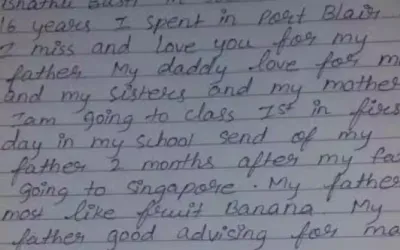 Basti
16 years I spent in Port Blair
I miss and love you for my
father My daddy love for m
and my sisters and my mother
I am going to class 1st in firs
day in my school send of my
father 2 months after my fa
going to Singapore. My father
most like fruit Banana. My
father good advising for ma